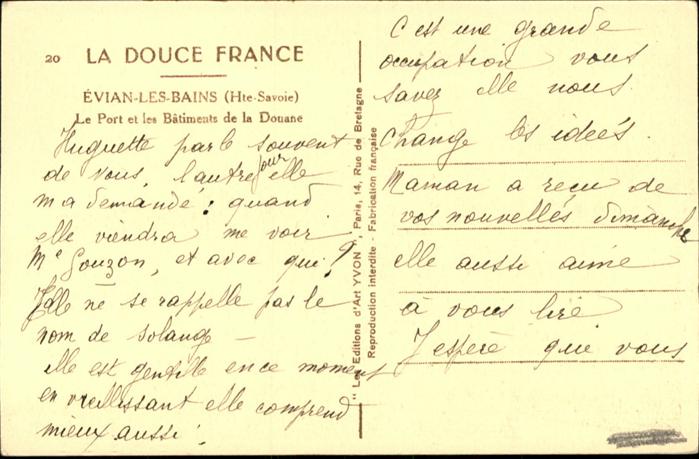 20 LA DOUCE FRANCE
ÉVIAN-LES-BAINS (Hte-Savoie)
Le Port et les Bâtiments de la Douane
Huguette parle souvent
de vous, l'autre jour elle
m a demandé : quand
elle viendra me voir
Me Gouzon, et avec qui ?
Elle ne se rappelle pas le
nom de Solange —
elle est gentille en ce moment
en vieillissant elle comprend
mieux aussi !
"Les Editions d'Art YVON", Paris, 14, Rue de Bretagne
Reproduction interdite - Fabrication française
C est une grande
occupation vous
savez elle nous
change les ideés.
Maman a reçu de
vos nouvelles dimanche
elle aussi aime
à vous lire
J espère que vous